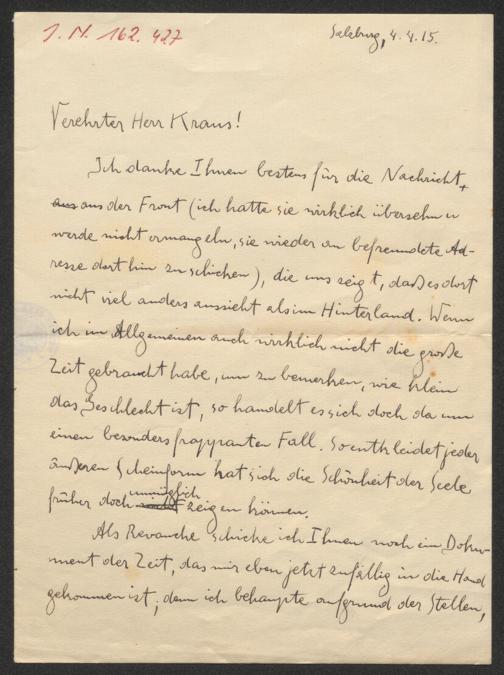 J. N. 162.427
Salzburg, 4. 4. 15.
Verehrter Herr Kraus!
Ich danke Ihnen bestens für die Nachricht
aus aus der Front (ich hatte sie wirklich übersehn u
werde nicht ermangeln, sie wieder an befreundete Ad-
resse dorthin zu schicken), die uns zeigt, daß es dort
nicht viel anders aussieht als im Hinterland. Wenn
ich im Allgemeinen auch wirklich nicht die große
Zeit gebraucht habe, um zu bemerken, wie klein
das Geschlecht ist, so handelt es sich doch da um
einen besonders frappranten Fall. So entkleidet jeder
äußeren Scheinform hat sich die Schönheit der Seele
früher doch unmöglich zeigen können.
Als Revanche schicke ich Ihnen noch ein Doku-
ment der Zeit, das mir eben jetzt zufällig in die Hand
gekommen ist; denn ich behaupte aufgrund der Stellen,